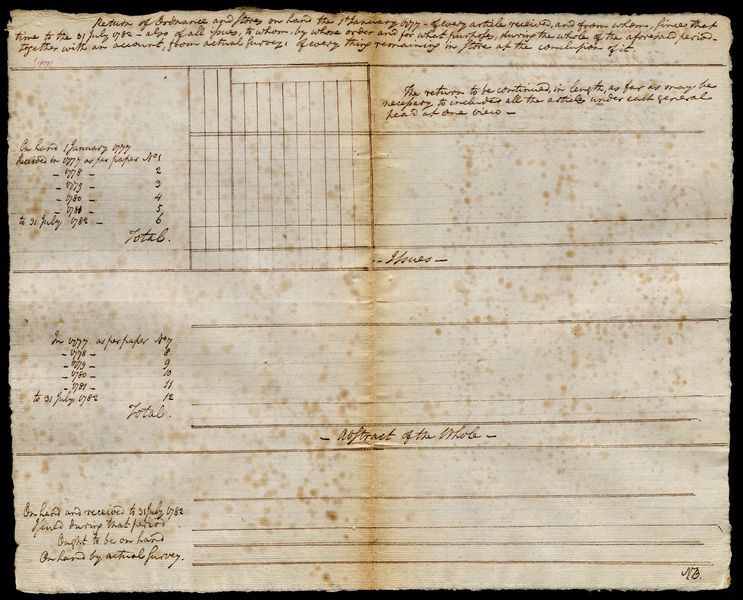 Return of Ordnance and Stores on hand the 1st January 1777 – of every article received, and from whom, since that
time to the 31 July 1782 – also of all issues, to whom, by whose order and for what purposes, during the whole of the aforesaid period –
together with an account, from actual Survey, of every thing remaining in Store at the conclusion of it.
The return to be continued, in length, as far as may be
necessary to include all the articles under each general
head at one view –
On hand 1 January 1777
Received in 1777 as per paper No 1
– 1778 – 2
– 1779 – 3
– 1780 – 4
– 1781 – 5
to 31 July 1782 – 6
Total.
– Issues –
In 1777 as per paper No 7
– 1778 – 8
– 1779 – 9
– 1780 – 10
– 1781 – 11
to 31 July 1782 12
Total.
– Abstract of the Whole –
On hand and received to 31 July 1782
Issued during that period
Ought to be on hand
On hand by actual Survey.
NB.